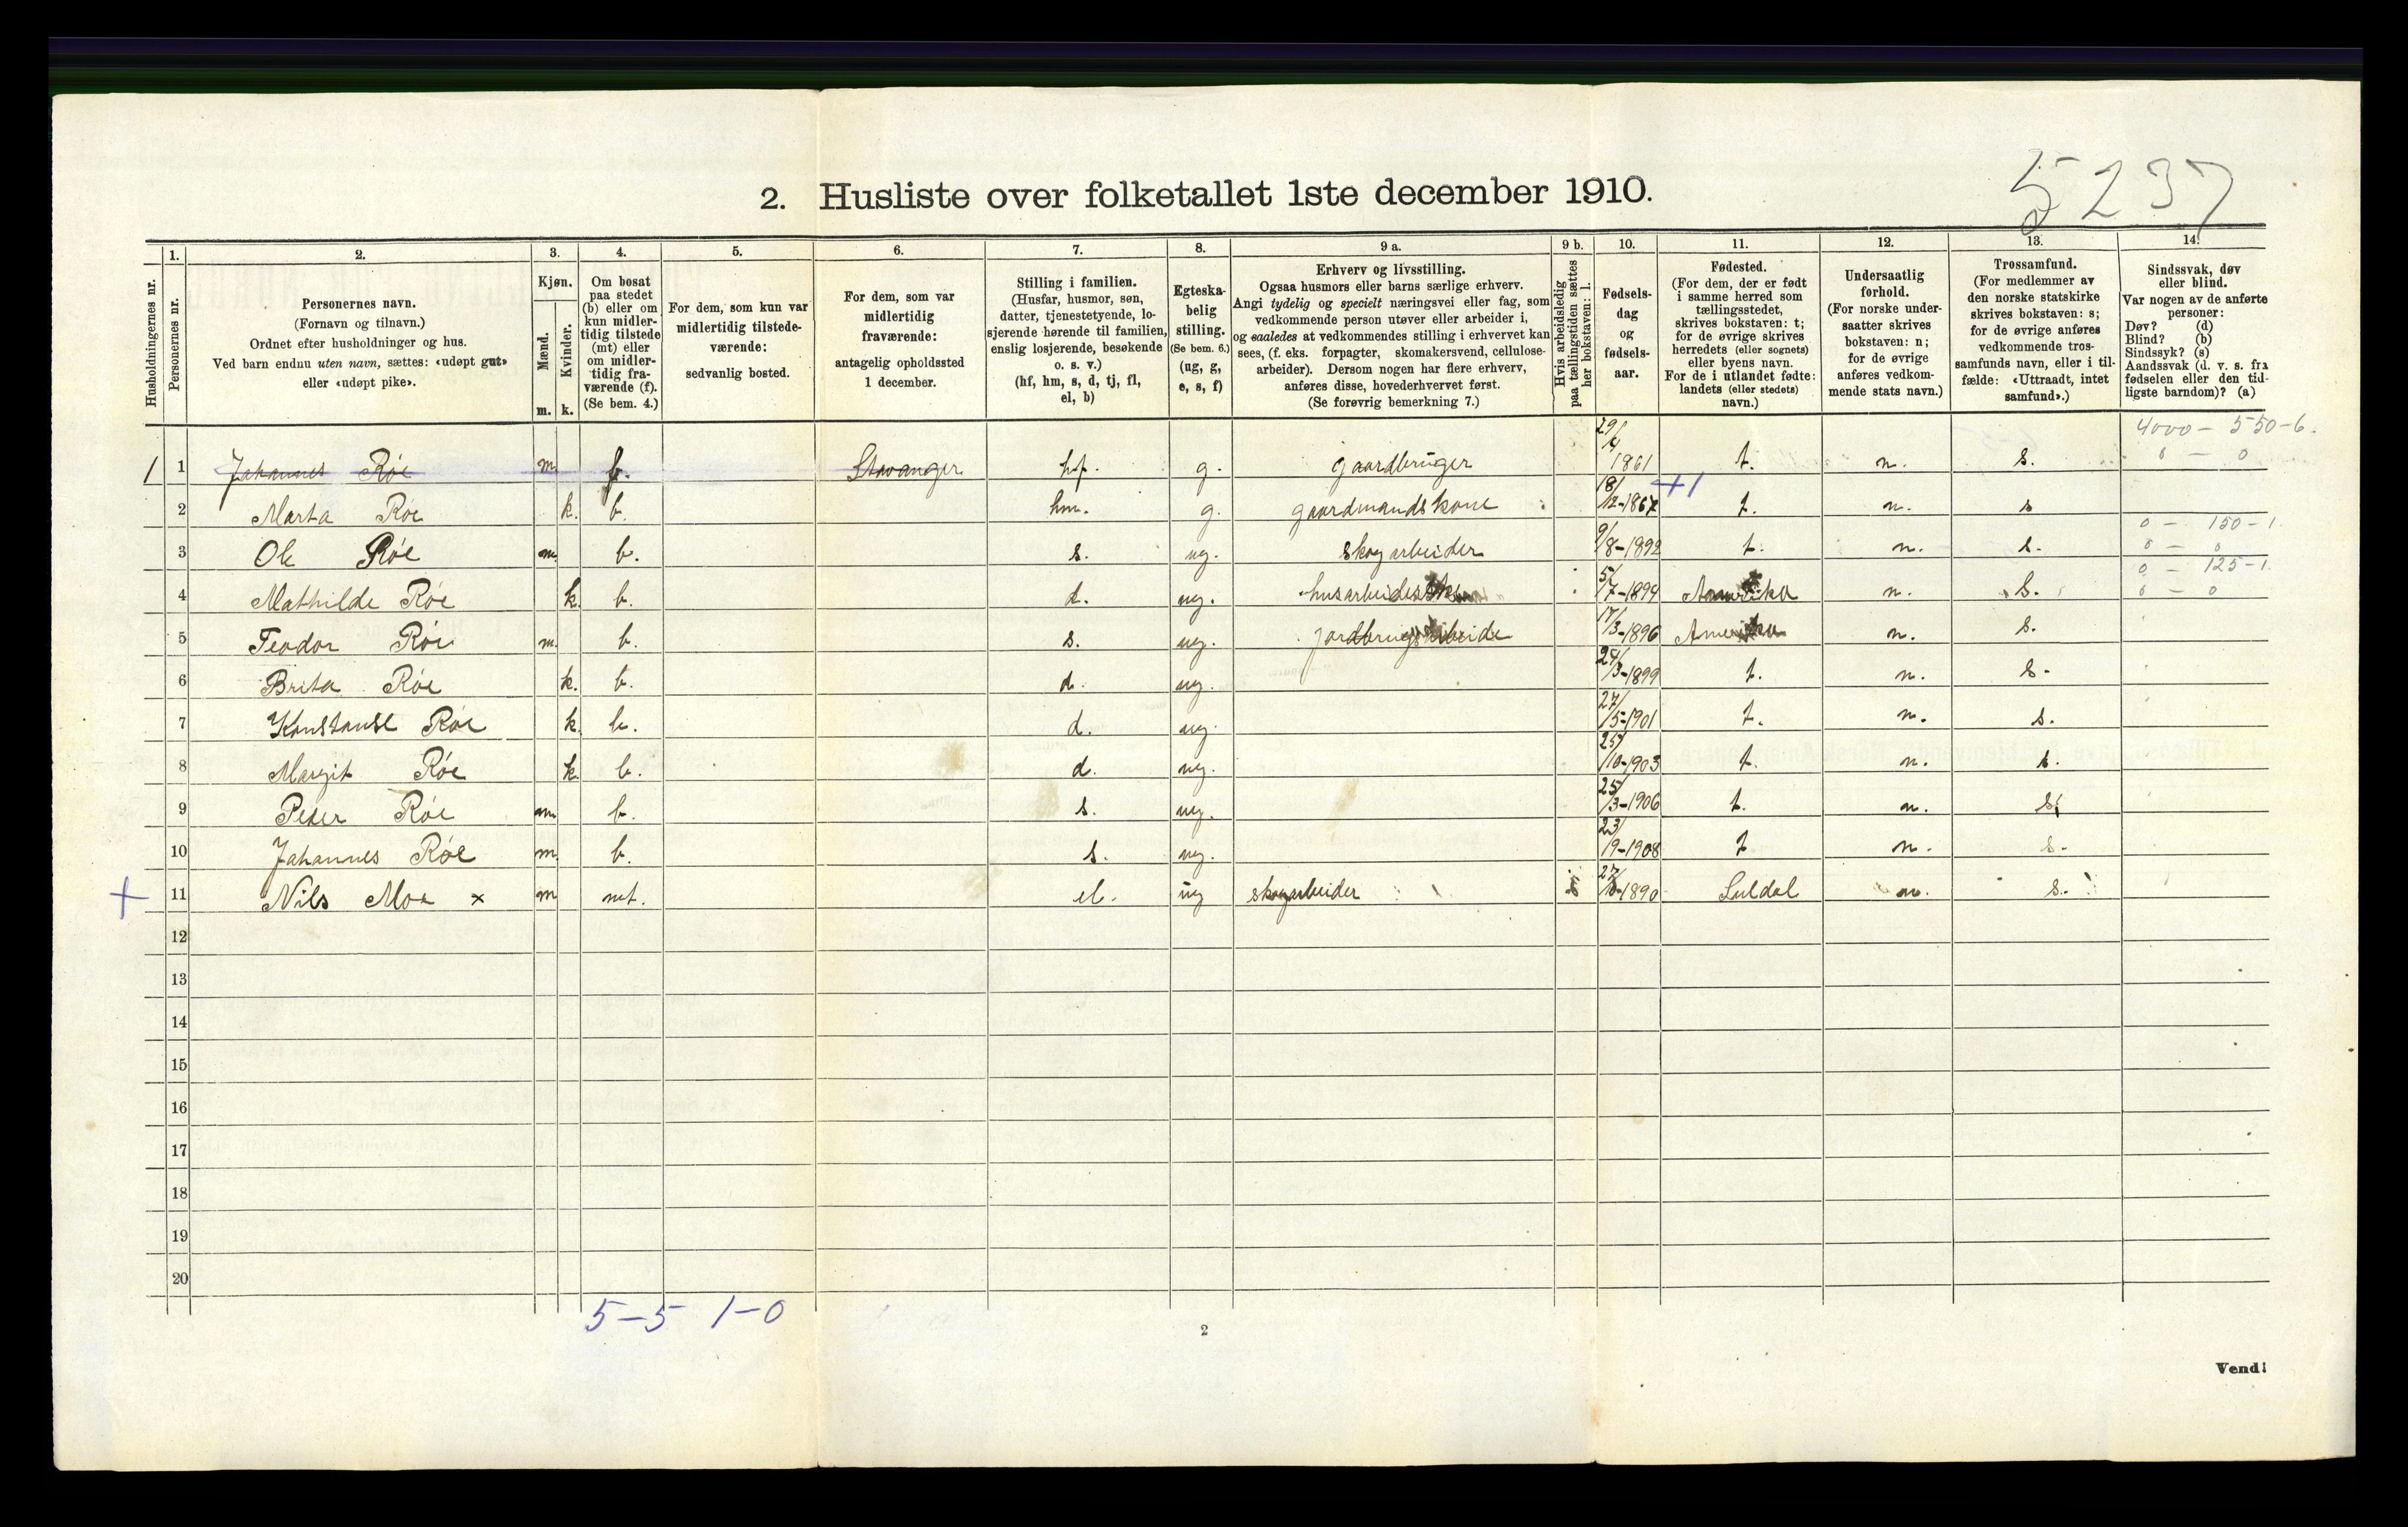 5237
2. Husliste over folketallet 1ste december 1910.
1. 2. 3. 4. 5. 6. 7. 8. 9 a. 9 b. 10. 11. 12. 13. 14.
Husholdningernes nr.
Personernes nr.
Personernes navn.
(Fornavn og tilnavn.)
Ordnet efter husholdninger og hus.
Ved barn endnu uten navn, sættes: «udøpt gut»
eller «udøpt pike».
Kjøn.
Mænd.
Kvinder.
m. k.
Om bosat
paa stedet
(b) eller om
kun midler-
tidig tilstede
(mt) eller
om midler-
tidig fra-
værende (f).
(Se bem. 4.)
For dem, som kun var
midlertidig tilstede-
værende:
sedvanlig bosted.
For dem, som var
midlertidig
fraværende:
antagelig opholdssted
1 december.
Stilling i familien.
(Husfar, husmor, søn,
datter, tjenestetyende, lo-
sjerende hørende til familien,
enslig losjerende, besøkende
o. s. v.)
(hf, hm, s, d, tj, fl,
el, b)
Egteska-
belig
stilling.
(Se bem. 6.)
(ug, g,
e, s, f)
Erhverv og livsstilling.
Ogsaa husmors eller barns særlige erhverv.
Angi tydelig og specielt næringsvei eller fag, som
vedkommende person utøver eller arbeider i,
og saaledes at vedkommendes stilling i erhvervet kan
sees, (f. eks. forpagter, skomakersvend, cellulose-
arbeider). Dersom nogen har flere erhverv,
anføres disse, hovederhvervet først.
(Se forøvrig bemerkning 7.)
Hvis arbeidsledig
paa tællingstiden sættes
her bokstaven: l.
Fødsels-
dag
og
fødsels-
aar.
Fødested.
(For dem, der er født
i samme herred som
tællingsstedet,
skrives bokstaven: t;
for de øvrige skrives
herredets (eller sognets)
eller byens navn.
For de i utlandet fødte:
landets (eller stedets)
navn.)
Undersaatlig
forhold.
(For norske under-
saatter skrives
bokstaven: n;
for de øvrige
anføres vedkom-
mende stats navn.)
Trossamfund.
(For medlemmer av
den norske statskirke
skrives bokstaven: s;
for de øvrige anføres
vedkommende tros-
samfunds navn, eller i til-
fælde: «Uttraadt, intet
samfund».)
Sindssvak, døv
eller blind.
Var nogen av de anførte
personer:
Døv? (d)
Blind? (b)
Sindssyk? (s)
Aandssvak (d. v. s. fra
fødselen eller den tid-
ligste barndom)? (a)
4000 - 550-6.
1 1 Johannes Røe m. f. Stavanger hf. g. gaardbruger 29/4 1861 t. n. s. 0 - 0
+1
2 Marta Røe k. b. hm. g. gaardmandskone 18/12-1867 t. n. s
0 - 150-1.
3 Ole Røe m. b. s. ug. skogarbeider 9/8-1892 t. n. s. 0 - 0
0 - 125-1.
4 Mathilde Røe k. b. d. ug. husarbeide 5/7-1894 Amerika n. s. 0 - 0
5 Teodor Røe m. b. s. ug. jordbrugsarbeide 17/3-1896 Amerika n. s.
6 Brita Røe k. b. d. ug. 24/3-1899 t. n. s.
7 Konstanse Røe k. b. d. ug. 27/5-1901 t. n. s.
8 Margit Røe k. b. d. ug. 25/10-1903 t. n. s.
9 Peder Røe m. b. s. ug. 25/3-1906 t. n. s.
10 Johannes Røe m. b. s. ug. 23/9-1908 t n. s.
+ 11 Nils Moe x m mt. el. ug skogarbeider 27/10-1890 Suldal n. s.
12
13
14
15
16
17
18
19
20
5-5 1-0
2
Vend!